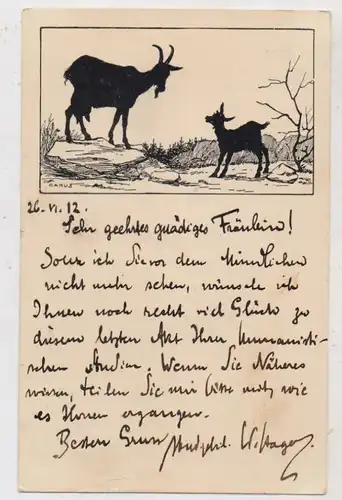 CARUS
26. VI. 12.
Sehr geehrtes gnädiges Fräulein!
Sollte ich Sie vor dem Mündlichen
nicht mehr sehen, wünsche ich
Ihnen noch recht viel Glück zu
diesem letzten Akt Ihrer humanisti-
schen Studien. Wenn Sie Näheres
wissen, teilen Sie mir bitte mit, wie
es Ihnen ergangen.
Besten Gruss stud. phil. W.